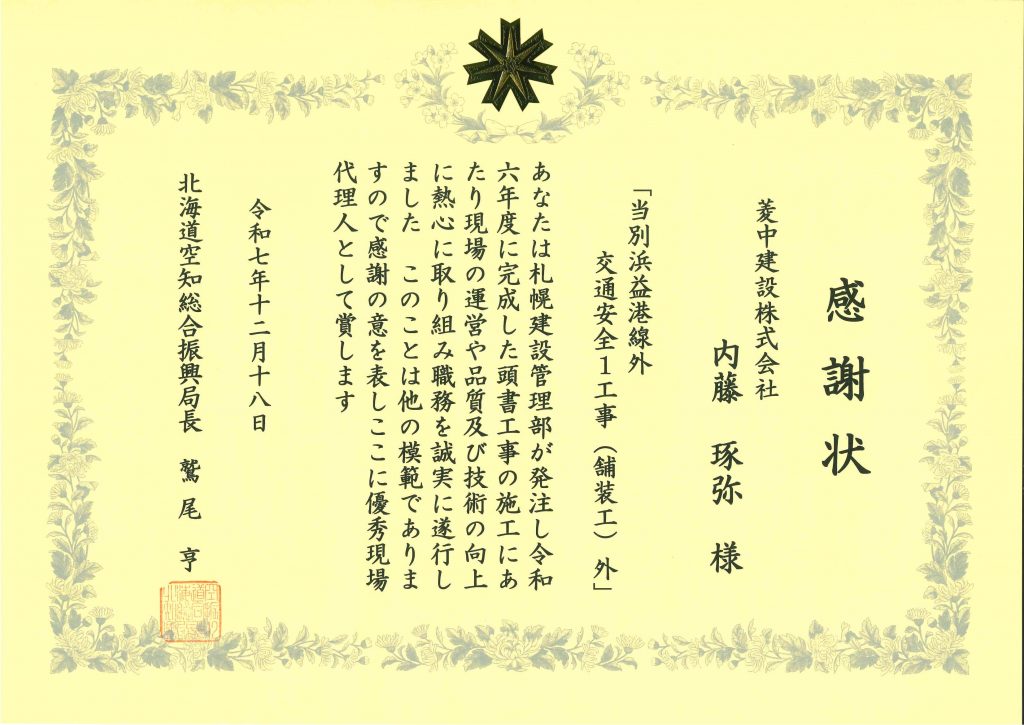 感謝状
菱中建設株式会社
内藤 琢弥 様
「当別浜益港線外
交通安全1工事(舗装工)外」
あなたは札幌建設管理部が発注し令和
六年度に完成した頭書工事の施工にあ
たり現場の運営や品質及び技術の向上
に熱心に取り組み職務を誠実に遂行し
ました このことは他の模範でありま
すので感謝の意を表しここに優秀現場
代理人として賞します
令和七年十二月十八日
北海道空知総合振興局長 鷲尾 亨